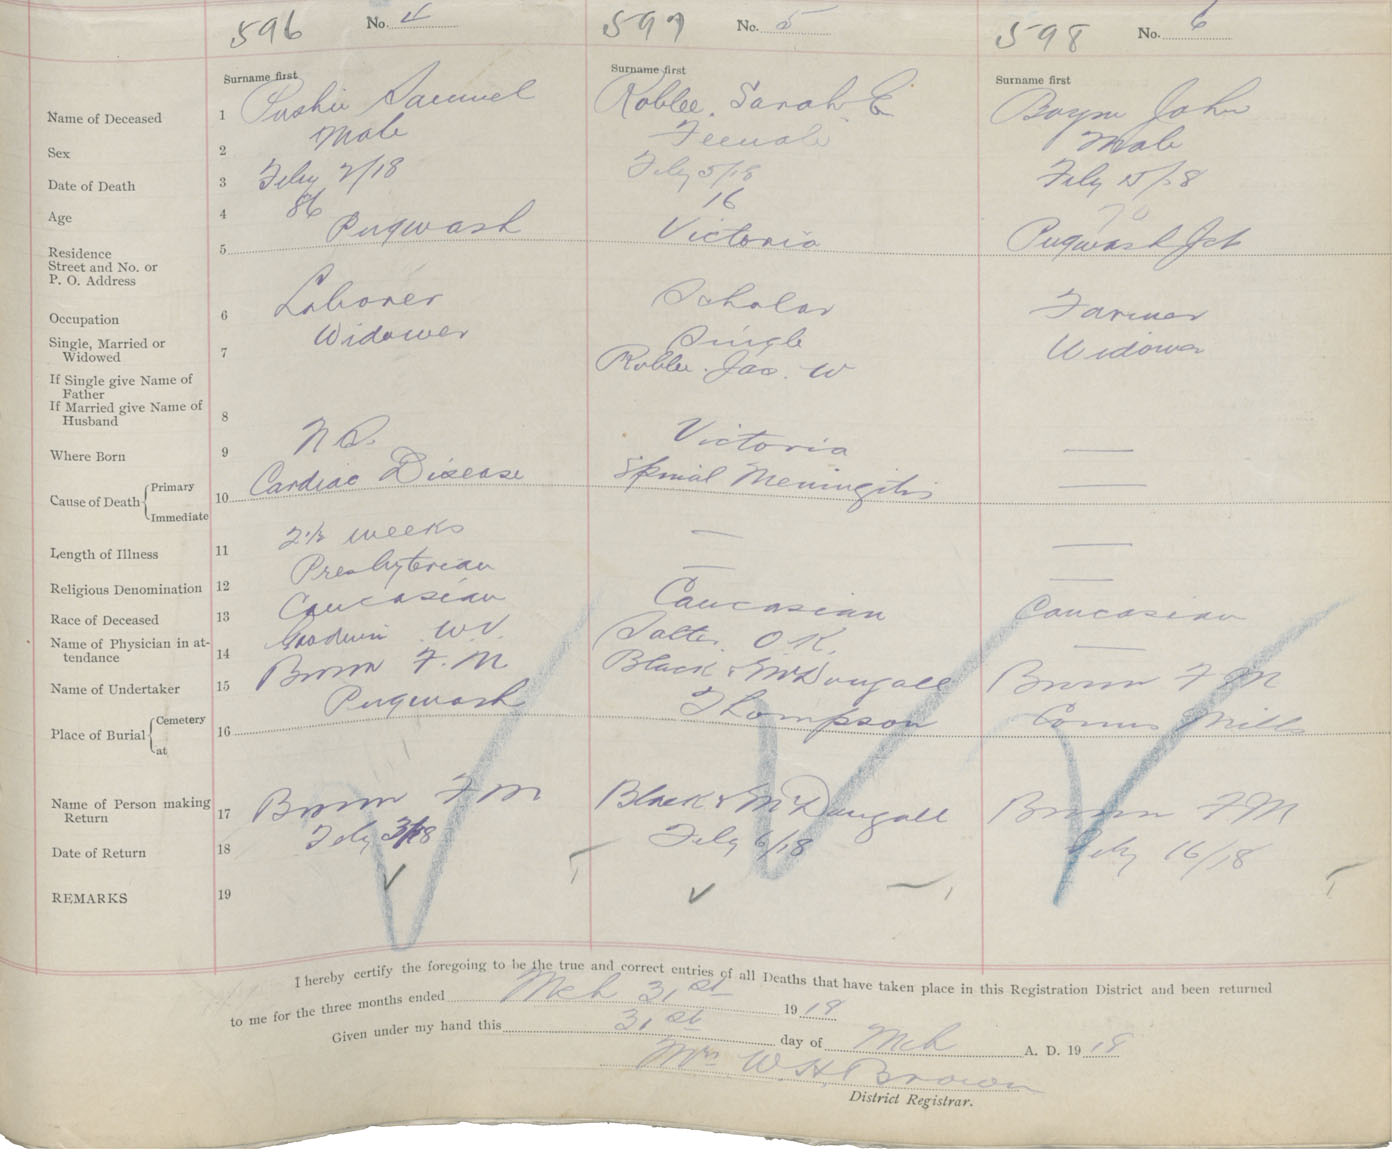 596 No. 4 597 No. 5 598 No. 6
Surname first Surname first Surname first
Name of Deceased 1 Samuel Roblee, Sarah E John
Sex 2 Male Female Male
Date of Death 3 Feby 2/18 Feby 5/18 Feby 15/18
Age 4 86 16 70
Residence Street and No. or P. O. Address 5 Pugwash Victoria Pugwash Jct
Occupation 6 Laborer Scholar Farmer
Single, Married or Widowed 7 Widower Single Widower
If Single give Name of Father
If Married give Name of Husband 8 Roblee. Jas. W
Where Born 9 N.S. Victoria —
Cause of Death { Primary Immediate 10 Cardiac Disease Spinal Meningitis —
Length of Illness 11 2½ weeks — —
Religious Denomination 12 Presbyterian — —
Race of Deceased 13 Caucasian Caucasian Caucasian
Name of Physician in attendance 14 Goodwin W.V. Salter. O.K. —
Name of Undertaker 15 Brown F. M Black & McDougall Brown F M
Place of Burial { Cemetery at 16 Pugwash Thompson Conns Mills
Name of Person making Return 17 Brown F M Black & McDougall Brown F M
Date of Return 18 Feby 3/18 Feby 6/18 Feby 16/18
REMARKS 19
I hereby certify the foregoing to be the true and correct entries of all Deaths that have taken place in this Registration District and been returned
to me for the three months ended Mch 31st 1918
Given under my hand this 31st day of Mch A. D. 1918
Mrs W. H. Brown
District Registrar.